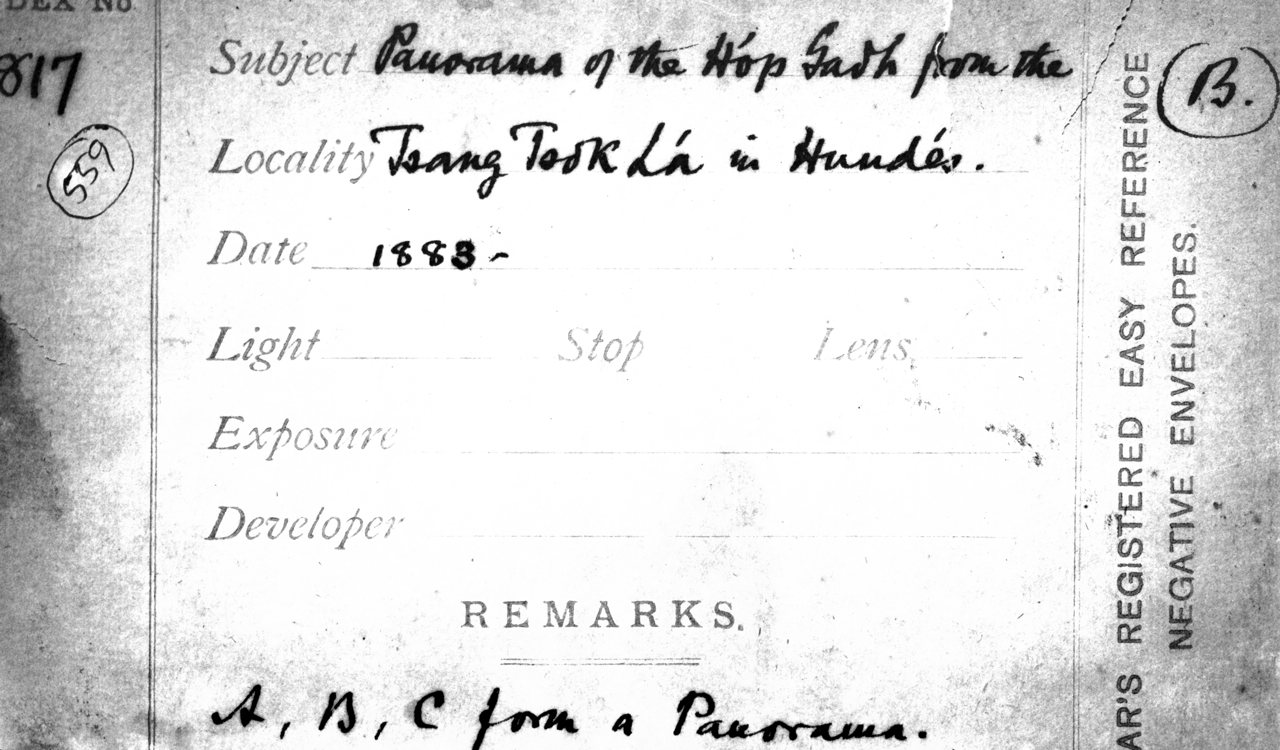 DEX No
817
559
Subject Panorama of the Hóp Gadh from the
Locality Tsang Tsok Lá in Hundés.
Date 1883-
Light Stop Lens
Exposure
Developer
REMARKS.
A, B, C form a Panorama.
B.
AR'S REGISTERED EASY REFERENCE
NEGATIVE ENVELOPES.